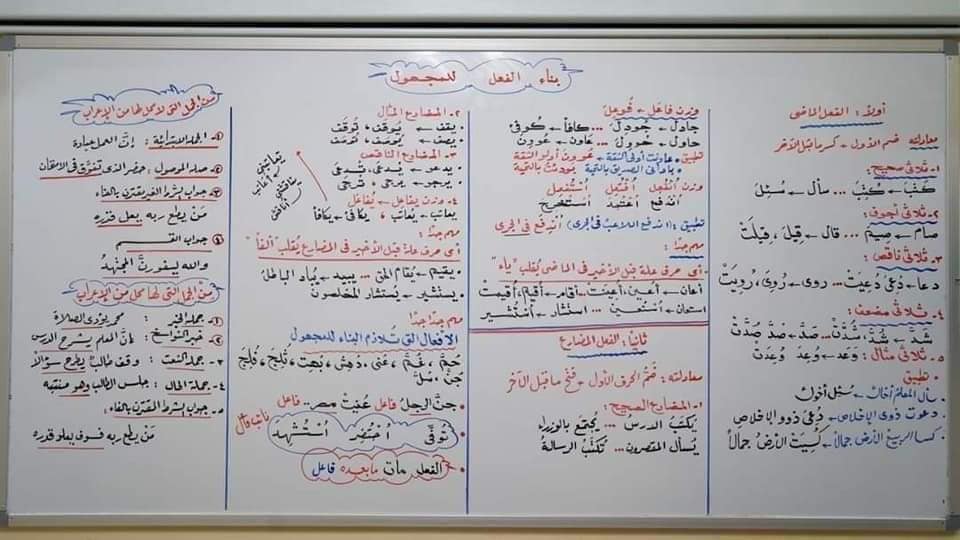 بناء الفعل للمجهول
أولاً: الفعل الماضى
معادلته ضم الأول - كسر ما قبل الآخر
١- ثلاثى صحيح:
كَتَبَ ← كُتِبَ ... سأل ← سُئِلَ
٢- ثلاثى أجوف:
صام ← صِيمَ ... قال ← قِيلَ، قِيلَتْ
٣- ثلاثى ناقص:
دعا ← دُعِىَ، دُعِيَتْ ... روى ← رُوِىَ، رُوِيَتْ
٤- ثلاثى مضعف:
شد ← شُدَّ، شُدَّتْ ... صدَّ ← صُدَّ، صُدَّتْ
٥- ثلاثى مثال: وَعَدَ ← وُعِدَ وُعِدَتْ
تطبيق
سأل المعلم أخاك ← سُئِلَ أخوك
دعوت ذوى الإخلاص ← دُعِىَ ذوو الإخلاص
كسا الربيعُ الأرضَ جمالاً ← كُسِيَتْ الأرضُ جمالاً
وزن فَاعَلَ ← فُوعِلَ
جادل ← جُودِلَ ... كافأ ← كُوفئ
حاول ← حُووِلَ ... عاون ← عُووِنَ
تطبيق: عاونت أولى الثقة ← عُووِنَ أولو الثقة
بادأنى الصديق بالتحية ← بُودئتُ بالتحية
وزن انفُعِلَ افتُعِلَ استُفعِلَ
اُندُفِعَ اُعتُمِدَ اُستُخرِجَ
تطبيق: (اندفع اللاعبُ فى الجرى) اُندُفِعَ فى الجرى
مهم جدًا:
أى حرف علة قبل الأخير فى الماضى يُقلب "ياء"
أعان ← أُعينَ، أُعِينَتْ ... أقام ← أُقِيمَ، أُقِيمَتْ
استعان ← اُستُعينَ ... استشار ← اُستُشير
ثانيًا: الفعل المضارع
معادلته: ضَمُّ الحرف الأول - فتح ما قبل الآخر
١- المضارع الصحيح:
يكتب الدرس ... يُجتَمع بالوزراء
يُسأل المقصرون ... تُكتَب الرسالة
٢- المضارع المثال
يقف ← يُوقَف، تُوقَف
يصف ← يُوصَف، تُوصَف
٣- المضارع الناقص:
يدعو ← يُدعَى، تُدعَى
يرجو ← يُرجَى، تُرجَى
٤- وزن يفاعِل ← يُفاعَل
يعاتِب ← يُعاتَب، يكافئ ← يُكافأ
يعاتبنى
أُعاتَب
يناقشنى
أُناقَش
مهم جدًا:
أى حرف علة قبل الأخير فى المضارع يُقلب "ألفاً"
يقيم ← يُقام الحق ... يبيد ← يُباد الباطل
يستشير ← يُستشار المخلصون
مهم جدًا جدًا
الأفعال التى تلازم البناء للمجهول
حُمَّ، غُمَّ، عُنِى، دُهِش، بُهِت، ثُلِجَ، فُلِجَ
جُنَّ، سُلَّ
جُنَّ الرجلُ فاعل عُنيَتْ مصر- فاعل
تُوفِّى اُحتُضِر اُستُشهِدَ
نائب فاعل
الفعل مات ما بعده فاعل
من الجمل التى لا محل لها من الإعراب
١- الجملة الابتدائية: إنَّ العمل عبادة
٢- صلة الموصول: حضر الذى تفوَّق فى الامتحان
٣- جواب الشرط الغير مقترن بالفاء
مَنْ يطع ربه يعل قدره
٤- جواب القسم
والله ليفوزنَّ المجتهدُ
من الجمل التى لها محل من الإعراب
١- جملة الخبر: محمد يؤدى الصلاة
٢- خبر النواسخ: كأنَّ المعلم يشرح الدرس
٣- جملة النعت: وقف طالبٌ يطرح سؤالاً
٤- جملة الحال: جلس الطالب وهو منتبه
٥- جواب الشرط المقترن بالفاء:
مَنْ يطع ربه فسوف يعلو قدره